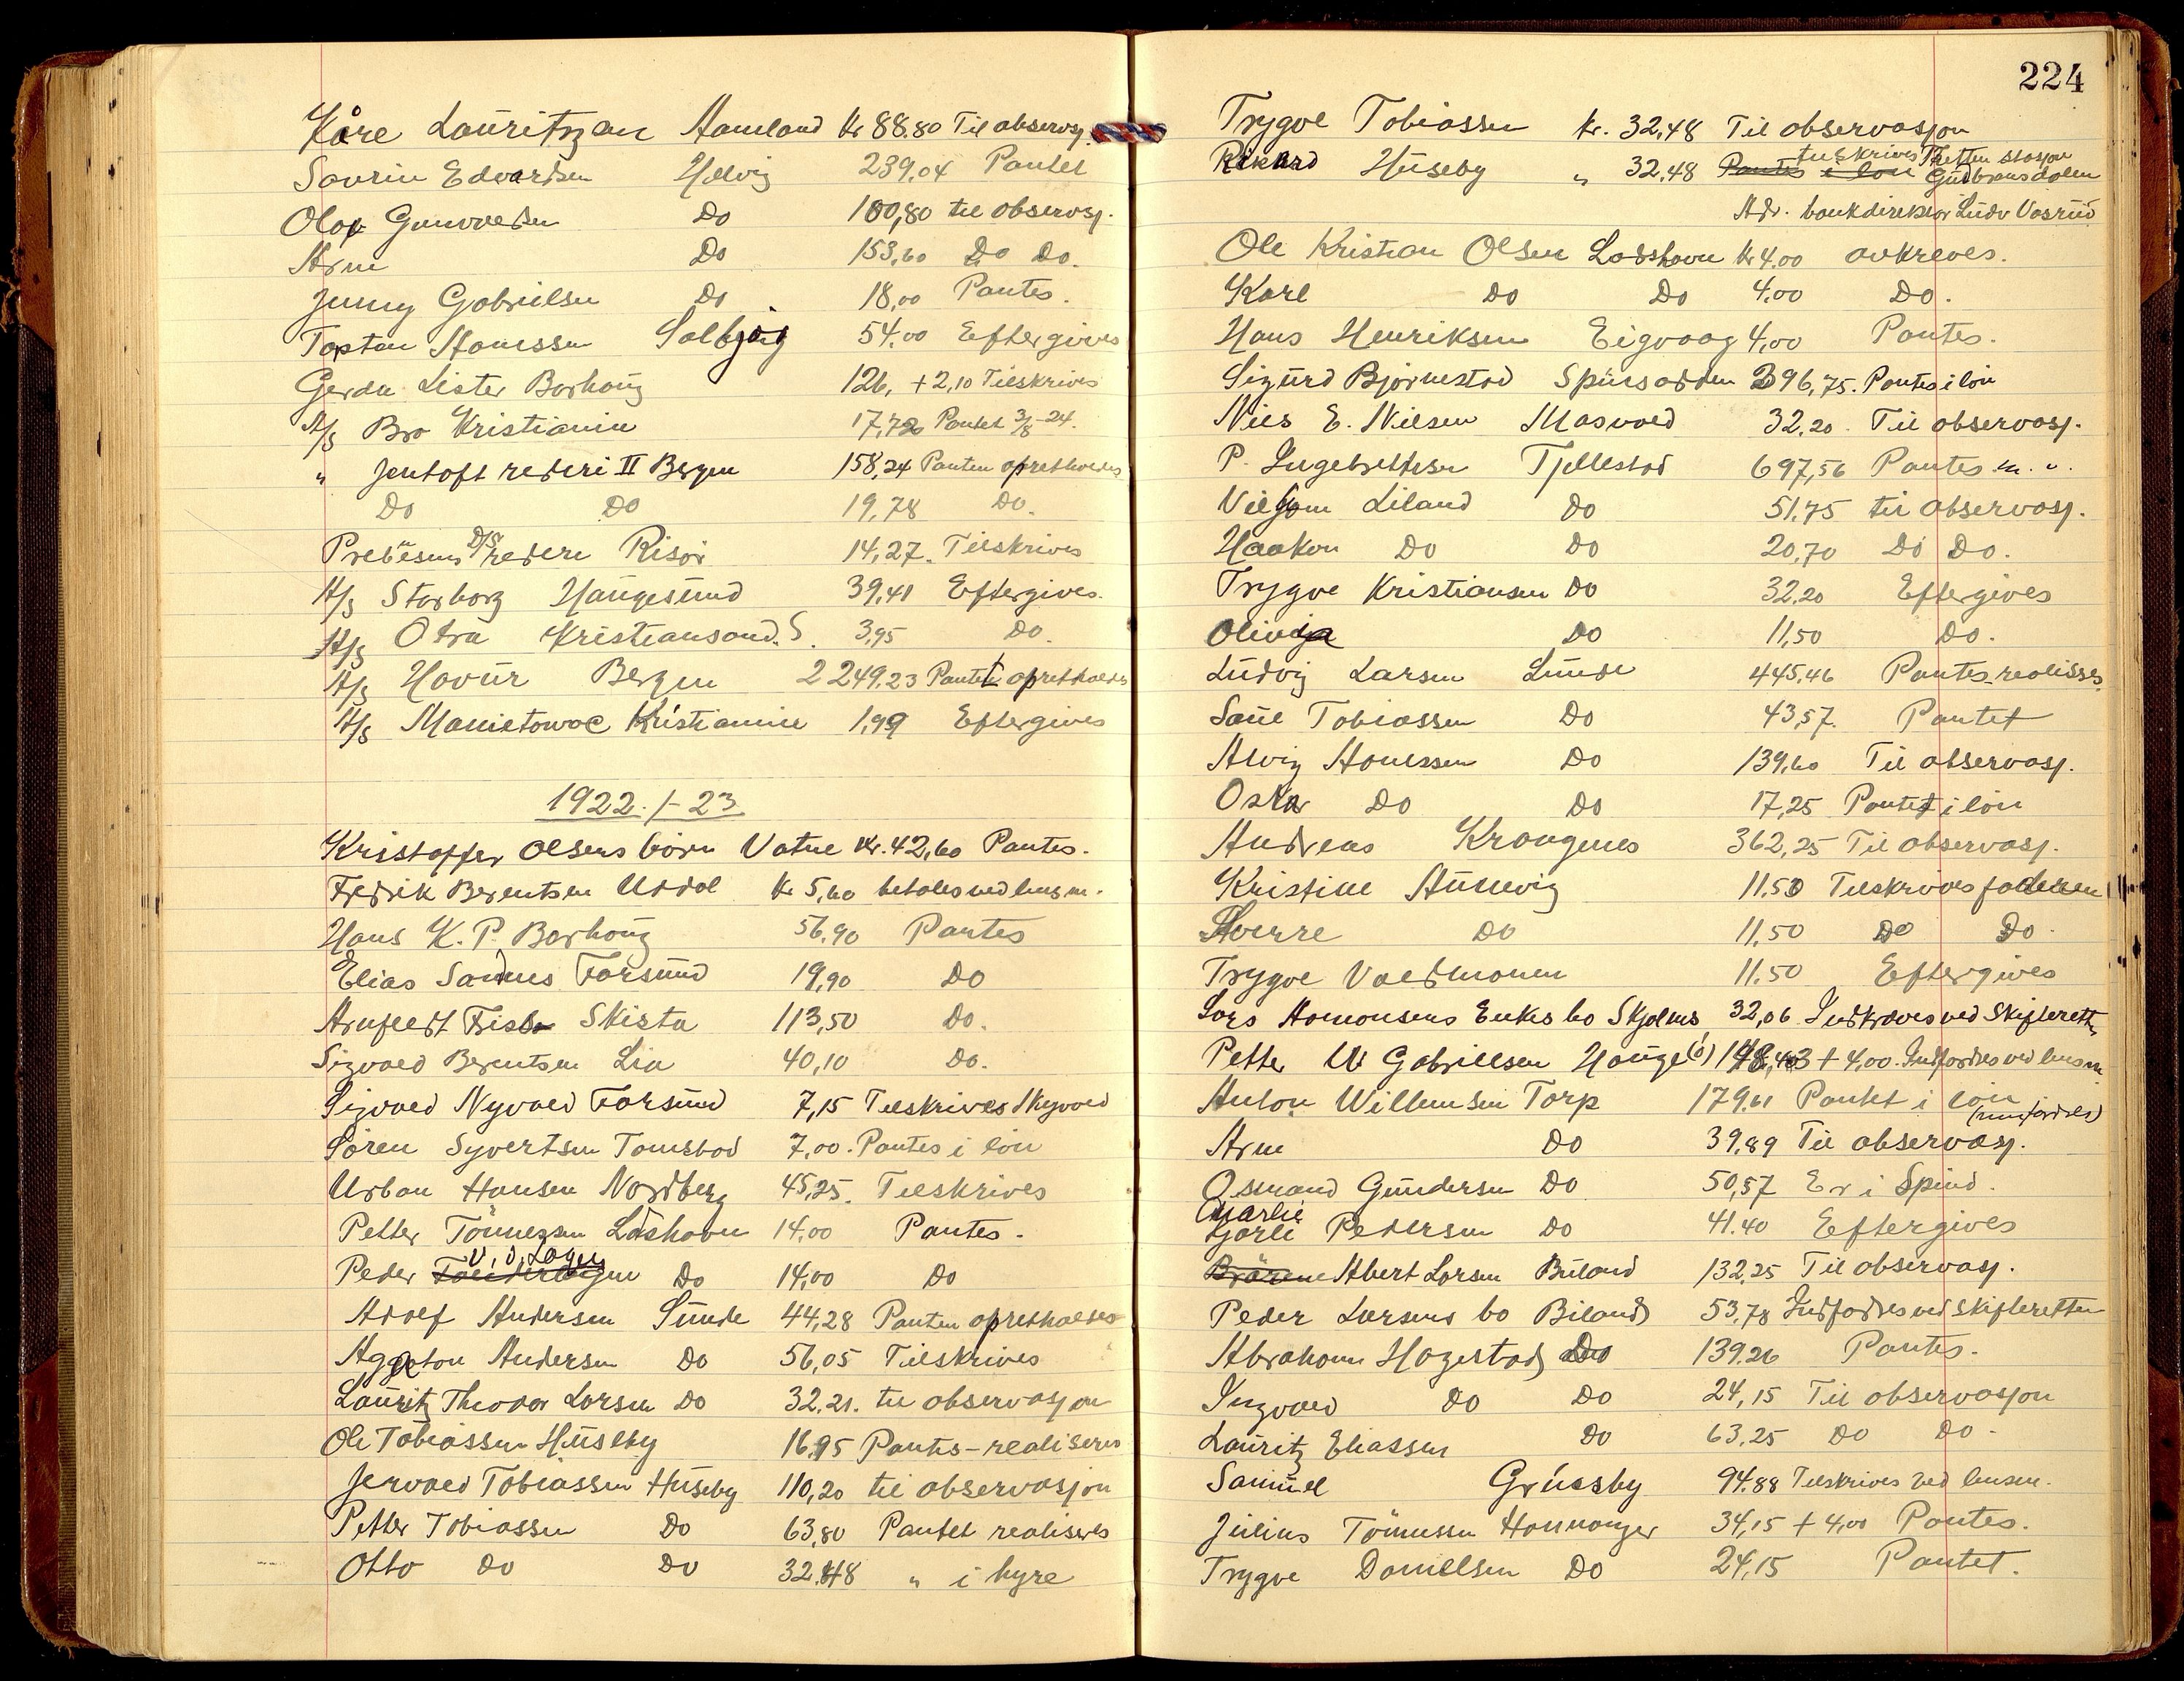 Kåre Lauritzen Aamland Kr 88.80 Til observasj.
Severin Edvardsen Helvig 239.04 Pantet
Olaf Gunvaldsen Do 100,80 til observasj.
Arne Do 153,60 Do Do.
Jenny Gabrielsen Do 18,00 Pantes.
Torstein Hanssen Solbjørg 54.00 Eftergives
Gerda Lister Borhaug 126, + 2,10 Tilskrives
A/s Bro Kristiania 17,72 Pantet 3/8-24.
" Jentoft rederi II Bergen 158,24 Panten opretholdes
Do Do 19,78 Do.
Prebensens D/s rederi Risör 14,27. Tilskrives
A/s Storborg Haugesund 39,41 Eftergives.
A/s Otra Kristiansand. S. 3,95 Do.
A/s Havur Bergen 2249.23 Pantet opretholdes
A/s Manietowoc Kristiania 1,99 Eftergives
1922./-23
Kristoffer Olsens börn Vatne Kr. 42,60 Pantes.
Fredrik Berentsen Urdal Kr 5,60 betales ved lensm.
Hans K. P. Borhaug 56.90 Pantes
Elias Sandnes Farsund 19,90 Do
Arnfeldt Skista 113,50 Do.
Sigvald Berentsen Lia 40,10 Do.
Sigvald Nyvold Farsund 7,15 Tilskrives Nyvold
Sören Syvertsen Tomstad 7,00. Pantes i lön
Urban Hansen Nordberg 45,25. Tilskrives
Petter Tönnessen Loshavn 14.00 Pantes.
Peder V. d. Lagen Do 14,00 Do
Adolf Andersen Sunde 44,28 Panten opretholdes
Agaton Andersen Do 56,05 Tilskrives
Lauritz Theodor Larsen Do 32.21. til observasjon
Ole Tobiassen Huseby 16.95 Pantes - realiseres
Jervald Tobiassen Huseby 110,20 til observasjon
Petter Tobiassen Do 63,80 Pantet realiseres
Otto Do Do 32,48 " i hyre
224
Trygve Tobiassen Kr. 32,48 Til observasjon
Rikard Huseby " 32.48 Pantes i lön tilskrives Tretten stasjon Gudbransdalen
Adr. bankdirektör Ludv Vasrud
Ole Kristian Olsen Loshavn Kr 4.00 avkreves.
Karl Do Do 4.00 Do.
Hans Henriksen Eigvaag 4,00 Pantes.
Sigurd Björnestad Spinsodden 396,75. Pantes i lön
Nils E. Nilsen Mosvold 32.20. Til observasj.
P. Ingebrethsen Tjellestad 697,56 Pantes m. v.
Viljam Liland Do 51.75 til observasj.
Haakon Do Do 20,70 Do Do.
Trygve Kristiansen Do 32.20 Eftergives
Oliva Do 11,50 Do.
Ludvig Larsen Lunde 445.46 Pantes-realiseres
Saul Tobiassen Do 43,57. Pantet
Alvig Hanssen Do 139,60 Til observasj.
Oskar Do Do 17,25 Pantet i lön
Andreas Kroagenes 362,25 Til observasj.
Kristine Aunevig 11.50 Tilskrives faderen
Sverre Do 11,50 Do Do.
Trygve Valdmanen 11.50 Eftergives
Lars Aamonsens Enkes bo Skjolnes 32,06 Indkræves ved Skifteretten
Petter W Gabrielsen Hauge (i) 148,43 + 4,00. Indfordres ved lensm
Anton Willumsen Torp 179.61 Pantet i lön
Arne Do 39,89 Til observasj.
Osmand Gundersen Do 50,57 Er i Spind.
Charlie Pedersen Do 41.40 Eftergives
Abert Larsen Buland 132,25 Til observasj.
Peder Larsens bo Biland 53,78 Indfordres ved skifteretten
Abraham Hagestad Do 139.26 Pantes.
Ingvald Do Do 24,15 Til observasjon
Lauritz Eliassen Do 63.25 Do Do.
Samuel Grúnsby 94.88 Tilskrives ved lensm.
Julius Tönnessen Hornanger 34,15 + 4,00 Pantes.
Trygve Danielsen Do 24,15 Pantet.